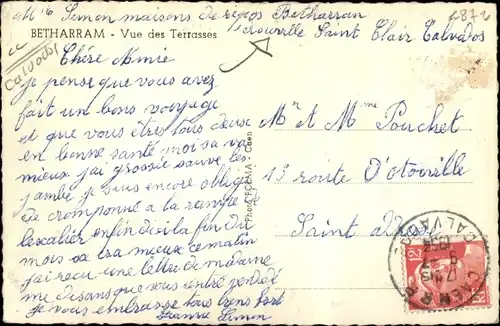 Mlle Simon maisons de repos Betharran
Hérouville Saint Clair Calvados
BETHARRAM - Vue des Terrasses
Calvados
Chère Amie
je pense que vous avez
fait un bons voyage
et que vous êtes tous deux
en bonne santé moi sa va
mieux j'ai grossie sauve les
jambe je suis encore obligé
De cromponné a la rampe de
l'escalier enfin d'isi la fin du
mois sa ira mieux ce matin
j'ai reçu une lettre de
me disans que vous
je vous embrasse tous biens fort
Simon
Photo FORMA - Caen
Mr et Mme Pouchet
13 route D'otonville
Saint
CALVADOS